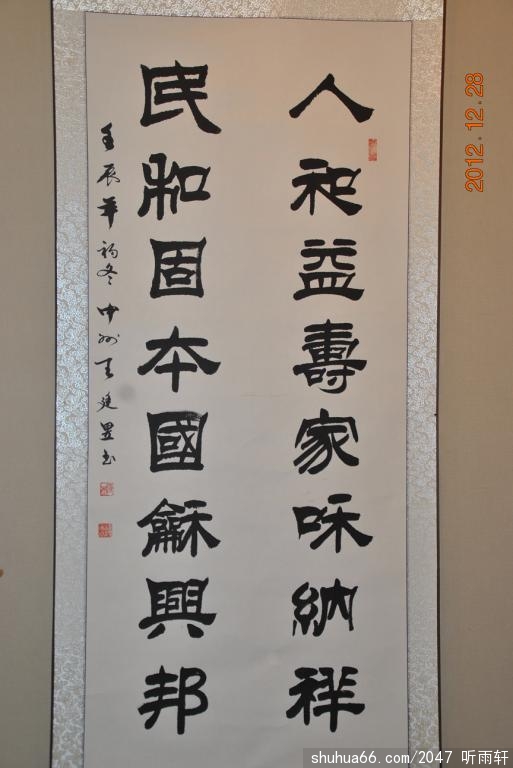 人和益壽家咊納祥
民和固本國龢興邦
壬辰年初冬中州王廷昱书
2012.12.28
shuhua66.com/2047 听雨轩